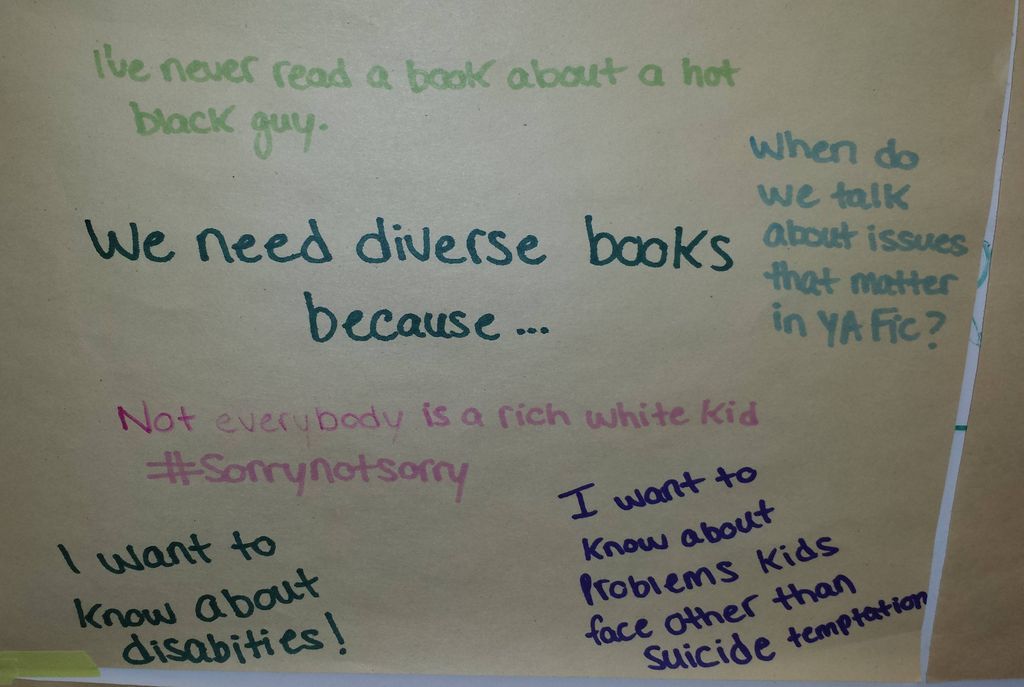 I've never read a book about a hot
black guy.
When do
we talk
about issues
that matter
in YA Fic?
We need diverse books
because...
Not everybody is a rich white kid
#Sorrynotsorry
I want to
know about
disabities!
I want to
know about
problems kids
face other than
suicide temptation